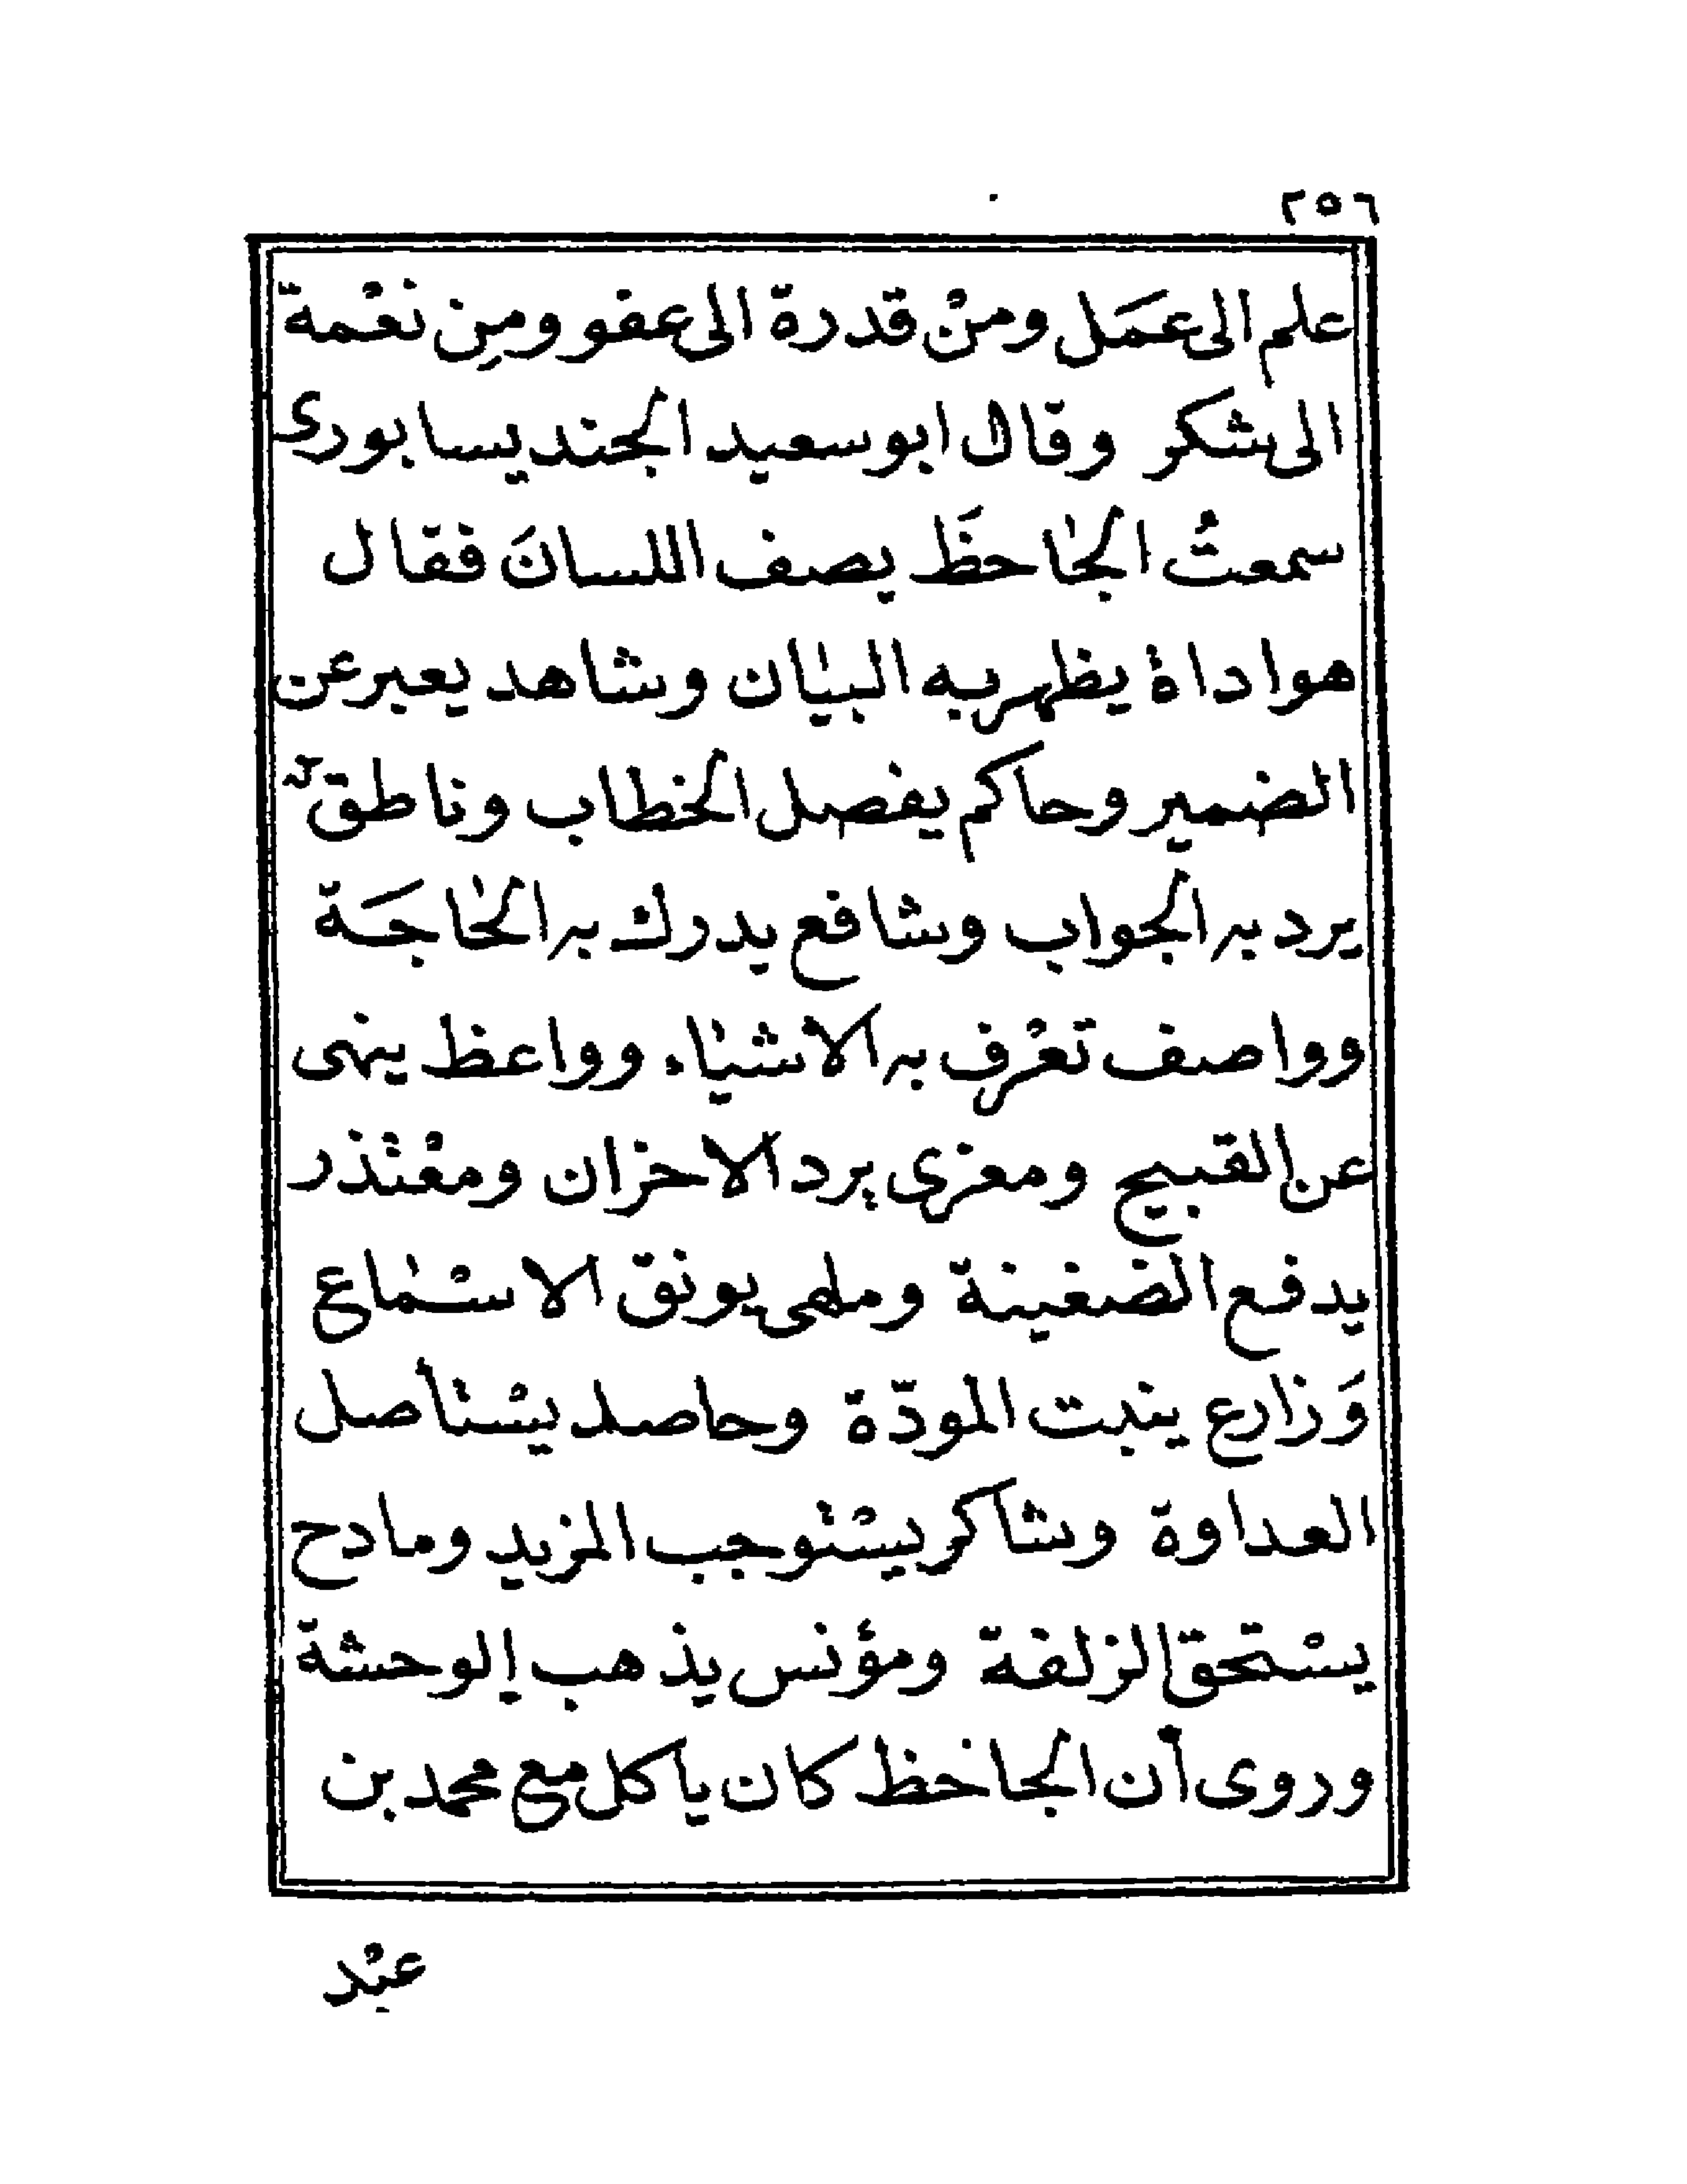 ٢٥٦
علم الى عمَل ومنْ قدرة الى عفو ومِن نعْمة
الى شكر وقال ابو سعيد الجنديسابورى
سمعتُ الجاحظَ يصف اللسانَ فقال
هو اداة يظهر به البيان وشاهد يعبر عن
الضمير وحاكم يفصل الخطاب وناطق
يرد به الجواب وشافع يدرك به الحاجَة
وواصف تعْرف به الاشياء وواعظ ينهى
عن القبيح ومعزى يرد الاحزان ومعْتذر
يدفع الضغينة وملهى يونق الاسْماع
وَزارع ينبت المودّة وحاصد يسْتأصل
العداوة وشاكر يسْتوجب المزيد ومادح
يسْتحق الزلفة ومؤنس يذهب الوحشة
وروى أن الجاحظ كان ياكل مع محمد بن
عبْد